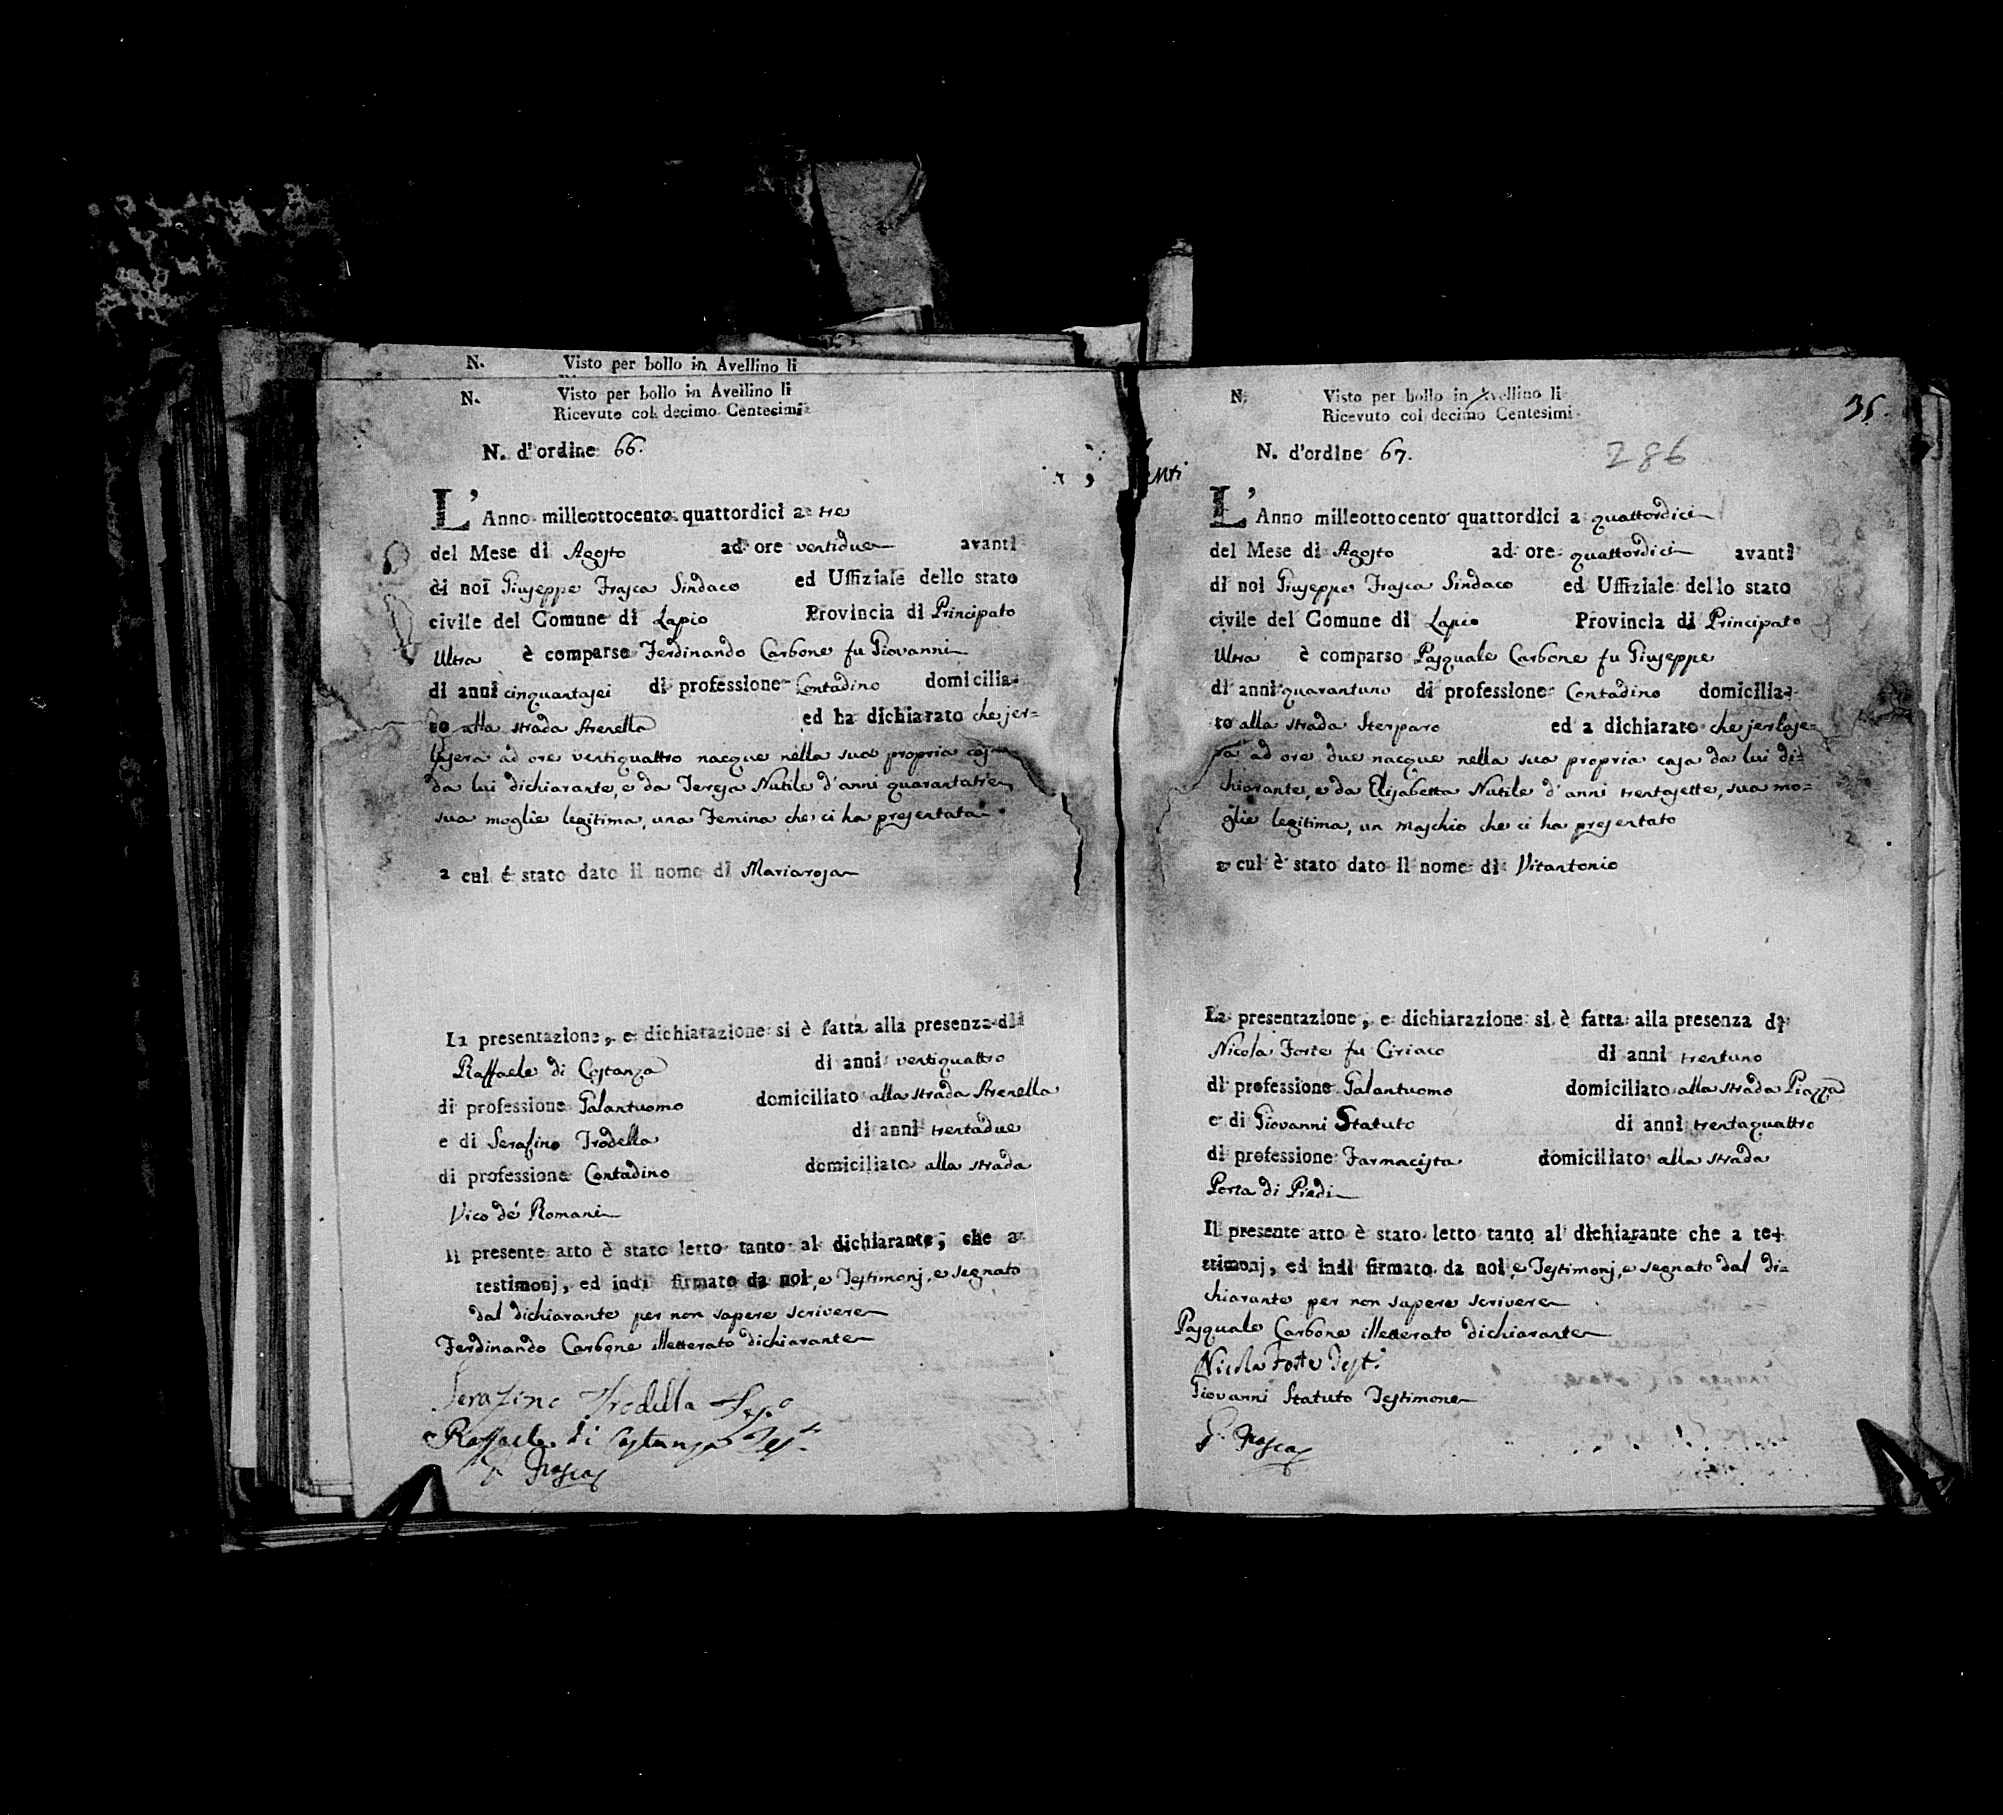 N. Visto per bollo in Avellino li
N. Visto per bollo in Avellino li
Ricevuto col decimo Centesimi
N. d'ordine 66.
L'Anno milleottocento quattordici a tre
del Mese di Agosto ad ore ventidue avanti
di noi Giuseppe Frasca Sindaco ed Uffiziale dello stato
civile del Comune di Lapio Provincia di Principato
Ultra è comparso Ferdinando Carbone fu Giovanni
di anni cinquantasei di professione Contadino domicilia-
to alla strada Arenella ed ha dichiarato che jer=
lasera ad ore ventiquattro nacque nella sua propria casa
da lui dichiarante, e da Teresa Nutile d'anni quarantatre
sua moglie legitima, una Femina che ci ha presentata
a cui é stato dato il nome di Mariarosa
La presentazione, e dichiarazione si è fatta alla presenza di
Raffaele di Costanza di anni ventiquattro
di professione Galantuomo domiciliato alla strada Arenella
e di Serafino Trodella di anni trentadue
di professione Contadino domiciliato alla strada
Vico de' Romani
Il presente atto è stato letto tanto al dichiarante, che a
testimonj, ed indi firmato da noi, e Testimonj, e segnato
dal dichiarante per non sapere scrivere
Ferdinando Carbone illetterato dichiarante
Serafino Trodella Tesº
Raffaele di Costanza Test.
G. Frasca
N. Visto per bollo in Avellino li
Ricevuto col decimo Centesimi
35.
N. d'ordine 67.
286
L'Anno milleottocento quattordici a quattordici
del Mese di Agosto ad ore quattordici avanti
di noi Giuseppe Frasca Sindaco ed Uffiziale dello stato
civile del Comune di Lapio Provincia di Principato
Ultra è comparso Pasquale Carbone fu Giuseppe
di anni quarantuno di professione Contadino domicilia-
to alla strada Sterparo ed a dichiarato che jerlase=
ra ad ore due nacque nella sua propria casa da lui di=
chiarante, e da Elisabetta Nutile d'anni trentasette, sua mo=
glie legitima, un maschio che ci ha presentato
a cui è stato dato il nome di Vitantonio
La presentazione, e dichiarazione si è fatta alla presenza di
Nicola Forte fu Ciriaco di anni trentuno
di professione Galantuomo domiciliato alla strada Piazza
e di Giovanni Statuto di anni trentaquattro
di professione Farmacista domiciliato alla strada
Porta di Piedi
Il presente atto è stato letto tanto al dichiarante che a te-
stimonj, ed indi firmato da noi, e Testimonj, e segnato dal di=
chiarante per non sapere scrivere
Pasquale Carbone illetterato dichiarante
Nicola Forte Test.
Giovanni Statuto Testimone
G. Frasca